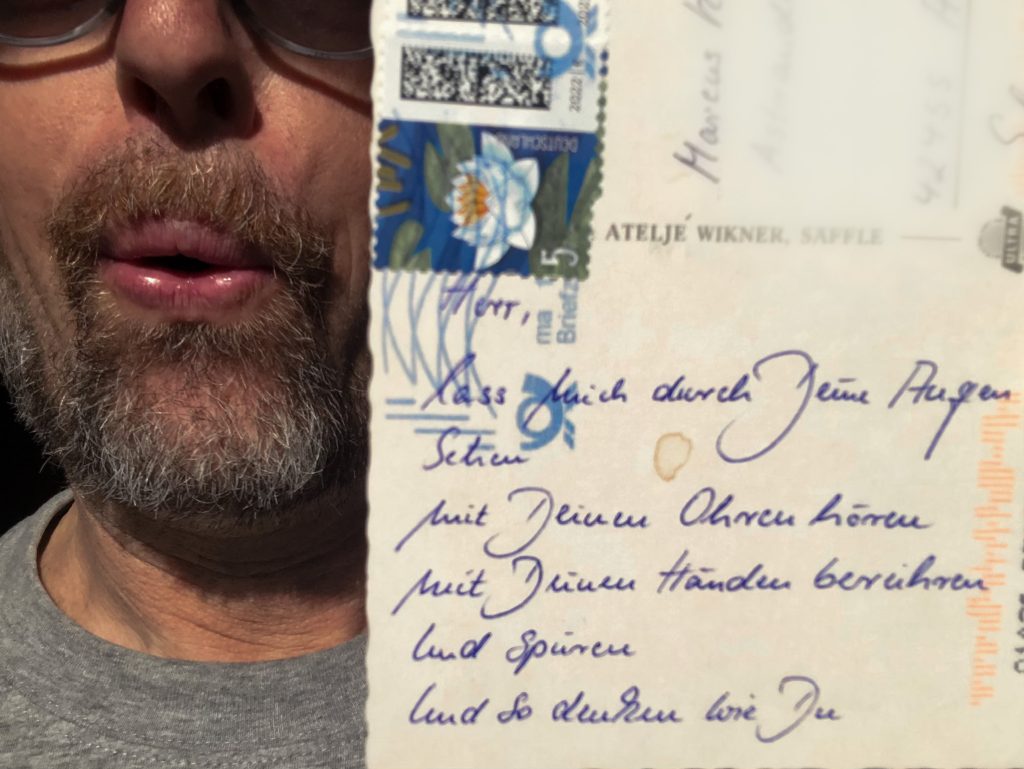 DEUTSCHLAND
5
Marcus
ATELJÉ WIKNER, SÄFFLE
Herr,
lass mich durch Deine Augen
Sehen
mit Deinen Ohren hören
mit Deinen Händen berühren
Und spüren
Und so denken wie Du